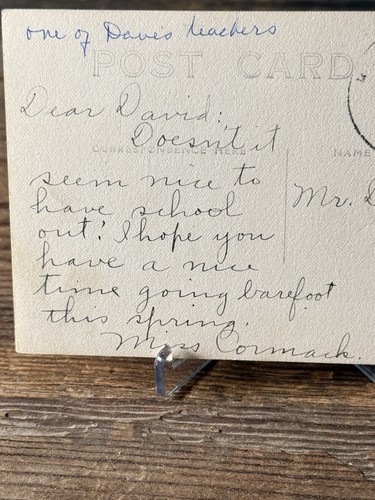 one of Dave's teachers
POST CARD
Dear David:
Doesn't it
CORRESPONDENCE HERE
NAME
seem nice to
have school
out! I hope you
have a nice
time going barefoot
this spring.
Miss Cormack.
Mr. D